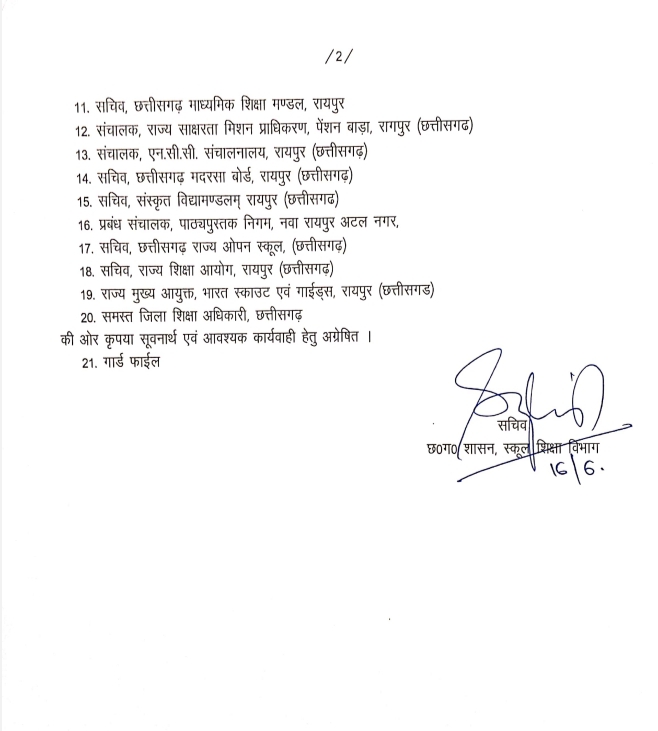 /2/
11. सचिव, छत्तीसगढ़ माध्यमिक शिक्षा मण्डल, रायपुर
12. संचालक, राज्य साक्षरता मिशन प्राधिकरण, पेंशन बाड़ा, रायपुर (छत्तीसगढ)
13. संचालक, एन.सी.सी. संचालनालय, रायपुर (छत्तीसगढ़)
14. सचिव, छत्तीसगढ़ मदरसा बोर्ड, रायपुर (छत्तीसगढ़)
15. सचिव, संस्कृत विद्यामण्डलम् रायपुर (छत्तीसगढ)
16. प्रबंध संचालक, पाठ्यपुस्तक निगम, नवा रायपुर अटल नगर,
17. सचिव, छत्तीसगढ़ राज्य ओपन स्कूल, (छत्तीसगढ़)
18. सचिव, राज्य शिक्षा आयोग, रायपुर (छत्तीसगढ़)
19. राज्य मुख्य आयुक्त, भारत स्काउट एवं गाईड्स, रायपुर (छत्तीसगड)
20. समस्त जिला शिक्षा अधिकारी, छत्तीसगढ़
की ओर कृपया सूचनार्थ एवं आवश्यक कार्यवाही हेतु अग्रेषित ।
21. गार्ड फाईल
सचिव
छ0ग0 शासन, स्कूल शिक्षा विभाग
16/6.